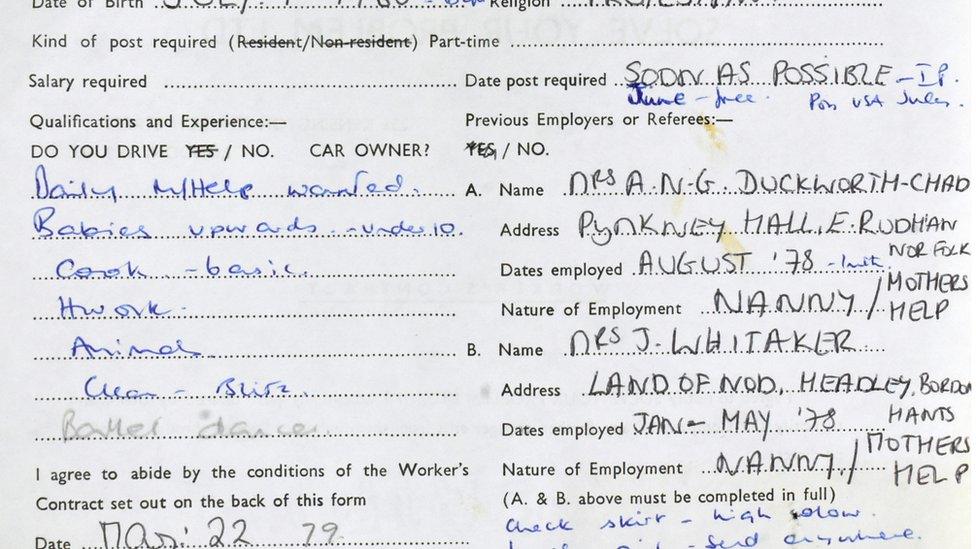 Date of Birth JULY. 1 Religion PROTESTANT
Kind of post required (Resident/Non-resident) Part-time
Salary required Date post required SOON AS POSSIBLE – I.P.
June – free. Poss USA July.
Qualifications and Experience:— Previous Employers or Referees:—
DO YOU DRIVE YES / NO. CAR OWNER? YES / NO.
Daily M/Help wanted. A. Name MRS A.N.G. DUCKWORTH-CHAD
Babies upwards – under 10. Address PYNKNEY HALL, E. RUDHAN
NORFOLK
Cook – basic. Dates employed AUGUST '78
Hwork. Nature of Employment NANNY / MOTHERS HELP
Animals B. Name MRS J. WHITAKER
Clean – Blitz. Address LAND OF NOD, HEADLEY, BORDON
HANTS
Ballet dancer Dates employed JAN – MAY '78
I agree to abide by the conditions of the Worker's Nature of Employment NANNY / MOTHERS HELP
Contract set out on the back of this form (A. & B. above must be completed in full)
check skirt – high
Date MAR: 22 79. send anywhere.